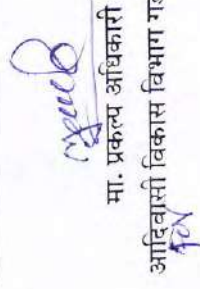 मा. प्रकल्प अधिकारी
आदिवासी विकास विभाग